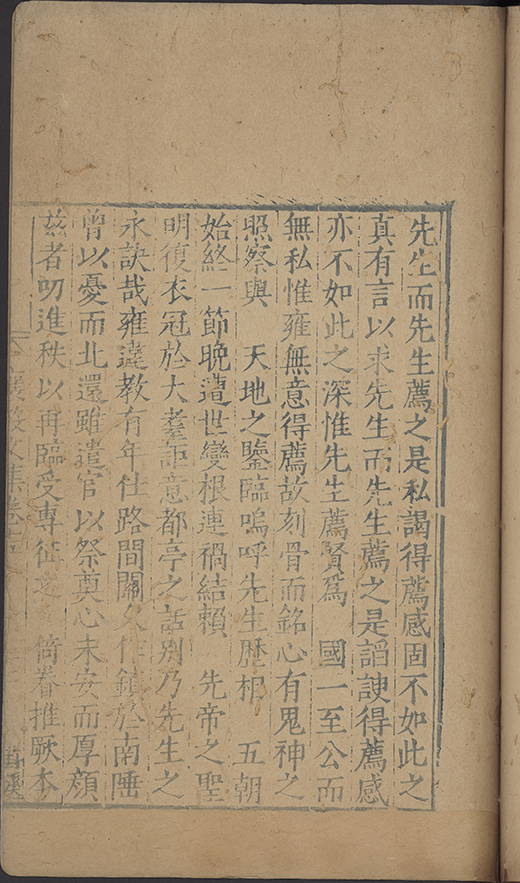 先生而先生薦之是私謁得薦感固不如此之
真有言以求先生而先生薦之是謟諛得薦感
亦不如此之深惟先生薦賢爲 國一至公而
無私惟雍無意得薦故刻骨而銘心有鬼神之
照察與 天地之鑒臨嗚呼先生歴相 五朝
始終一節晚遭世變根連禍結賴 先帝之聖
明復衣冠於大耋詎意都亭之話别乃先生之
永訣哉雍違教有年仕路間關久作鎮於南陲
曾以憂而北還雖遣官以祭奠心未安而厚顔
兹者叨進秩以再臨受專征之 倚眷推厥本
毅文集卷